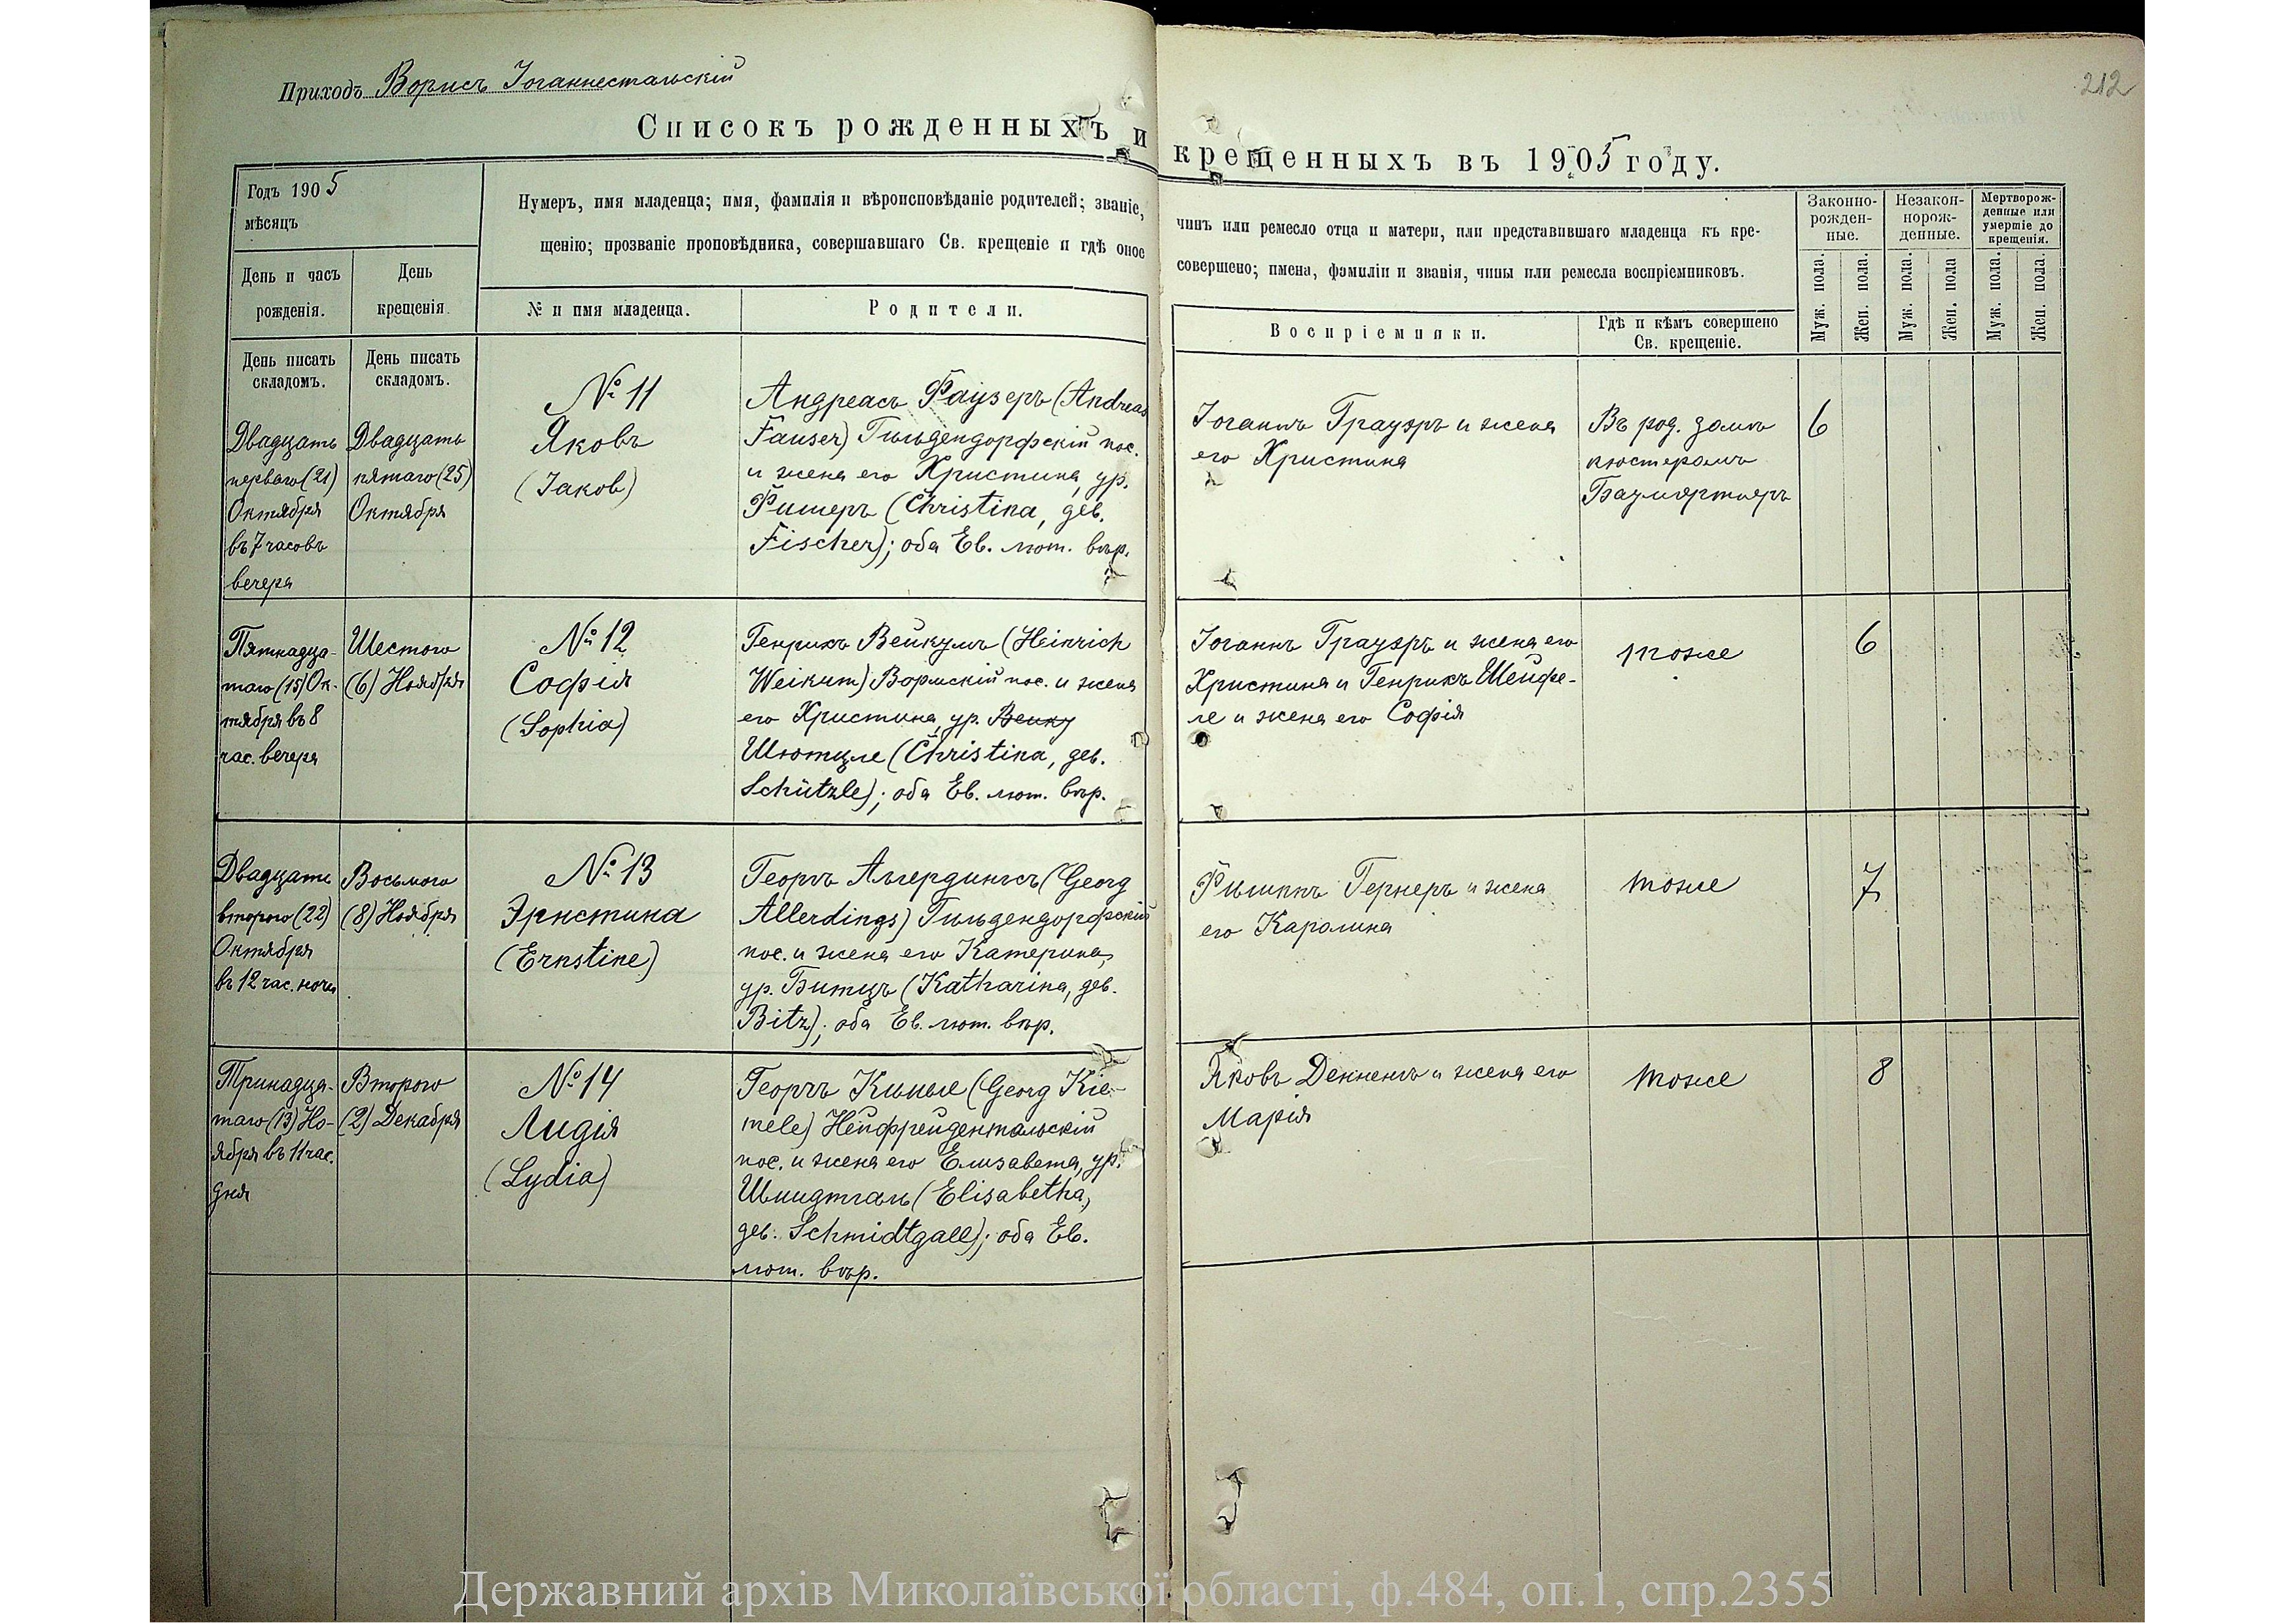 Приходъ Вормсъ Іоганнестальскій
212
Списокъ рожденныхъ и крещенныхъ въ 1905 году.
Годъ 1905
мѣсяцъ
День и часъ
рожденія.
День
крещенія.
Нумеръ, имя младенца; имя, фамилія и вѣроисповѣданіе родителей; званіе, чинъ или ремесло отца и матери, или представившаго младенца къ кре-
щенію; прозваніе проповѣдника, совершавшаго Св. крещеніе и гдѣ оное совершено; имена, фамиліи и званія, чины или ремесла воспріемниковъ.
№ и имя младенца.
Родители.
Воспріемники.
Гдѣ и кѣмъ совершено
Св. крещеніе.
Законно-
рожден-
ные.
Незакон-
норож-
денные.
Мертворож-
денные или
умершіе до
крещенія.
Муж. пола.
Жен. пола.
Муж. пола.
Жен. пола
Муж. пола.
Жен. пола.
День писать
складомъ.
День писать
складомъ.
Двадцать
перваго (21)
Октября
въ 7 часовъ
вечера
Двадцать
пятаго (25)
Октября
№ 11
Яковъ
(Jakob)
Андреасъ Фаузеръ (Andreas
Fauser) Гильдендорфскій пос.
и жена его Христина, ур.
Фишеръ (Christina, дев.
Fischer); оба Ев. лют. вѣр.
Іоганнъ Грауэръ и жена
его Христина
Въ род. домѣ
кюстеромъ
Баумгертнеръ
6
Пятнадца-
таго (15) Ок-
тября въ 8
час. вечера
Шестого
(6) Ноября
№ 12
Софія
(Sophia)
Генрихъ Вейкумъ (Heinrich
Weikum) Вормскій пос. и жена
его Христина, ур. Вейку
Шютцле (Christina, дев.
Schützle); оба Ев. лют. вѣр.
Іоганнъ Грауэръ и жена его
Христина и Генрихъ Шейфе-
ле и жена его Софія
тоже
6
Двадцать
второго (22)
Октября
въ 12 час. ночи
Восьмого
(8) Ноября
№ 13
Эрнстина
(Ernstine)
Георгъ Аллердингсъ (Georg
Allerdings) Гильдендорфскій
пос. и жена его Катерина,
ур. Битцъ (Katharina, дев.
Bitz); оба Ев. лют. вѣр.
Филиппъ Гернеръ и жена
его Каролина
тоже
7
Тринадца-
таго (13) Но-
ября въ 11 час.
дня
Второго
(2) Декабря
№ 14
Лидія
(Lydia)
Георгъ Кимеле (Georg Kie-
mele) Нейфрейдентальскій
пос. и жена его Елизавета, ур.
Шмидтгаль (Elisabetha,
дев. Schmidtgall); оба Ев.
лют. вѣр.
Яковъ Деннингъ и жена его
Марія
тоже
8
Державний архів Миколаївської області, ф.484, оп.1, спр.2355